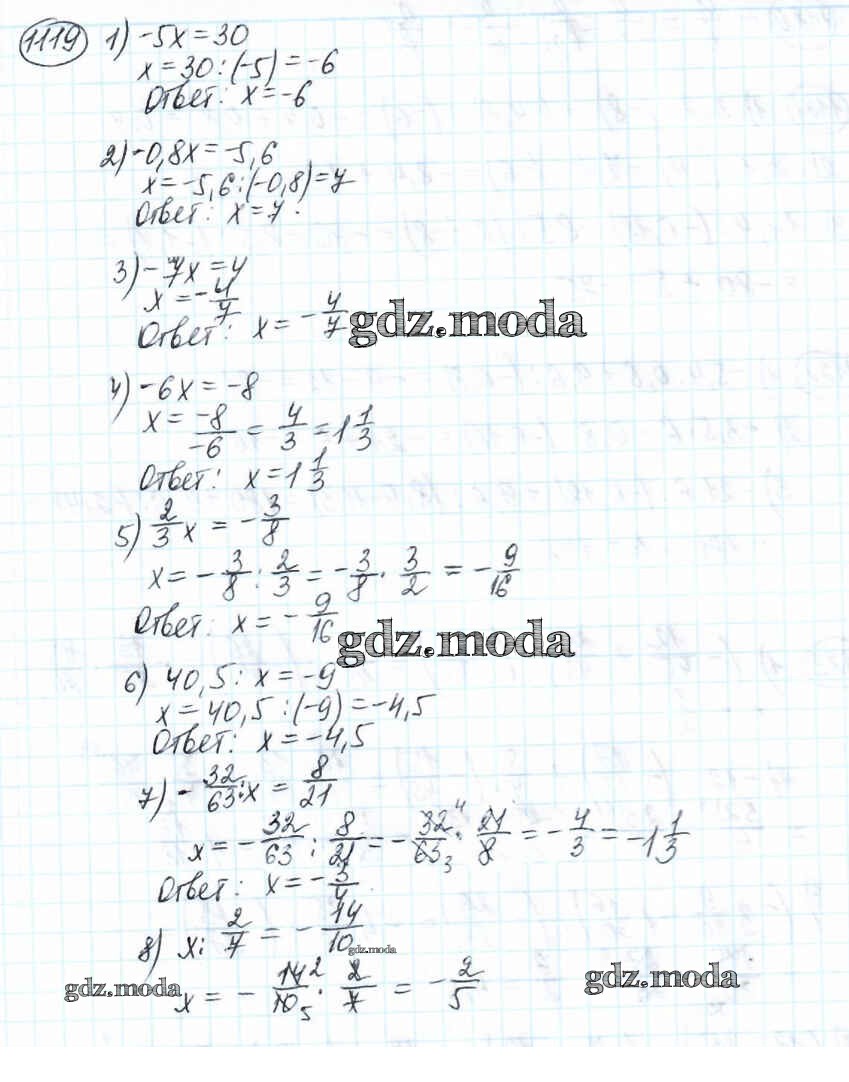 1119 1) -5x = 30
x = 30 : (-5) = -6
Ответ: x = -6
2) -0,8x = -5,6
x = -5,6 : (-0,8) = 7
Ответ: x = 7.
3) -7x = 4
x = -4/7
Ответ: x = -4/7
gdz.moda
4) -6x = -8
x = -8/-6 = 4/3 = 1 1/3
Ответ: x = 1 1/3
5) 2/3 x = -3/8
x = -3/8 : 2/3 = -3/8 · 3/2 = -9/16
Ответ: x = -9/16
gdz.moda
6) 40,5 : x = -9
x = 40,5 : (-9) = -4,5
Ответ: x = -4,5
7) -32/63 : x = 8/21
x = -32/63 : 8/21 = -32 4/63 3 · 21/8 = -4/3 = -1 1/3
Ответ: x = -3/4
8) x : 2/7 = -14/10
gdz.moda
x = -14 2/10 5 · 2/7 = -2/5
gdz.moda
gdz.moda